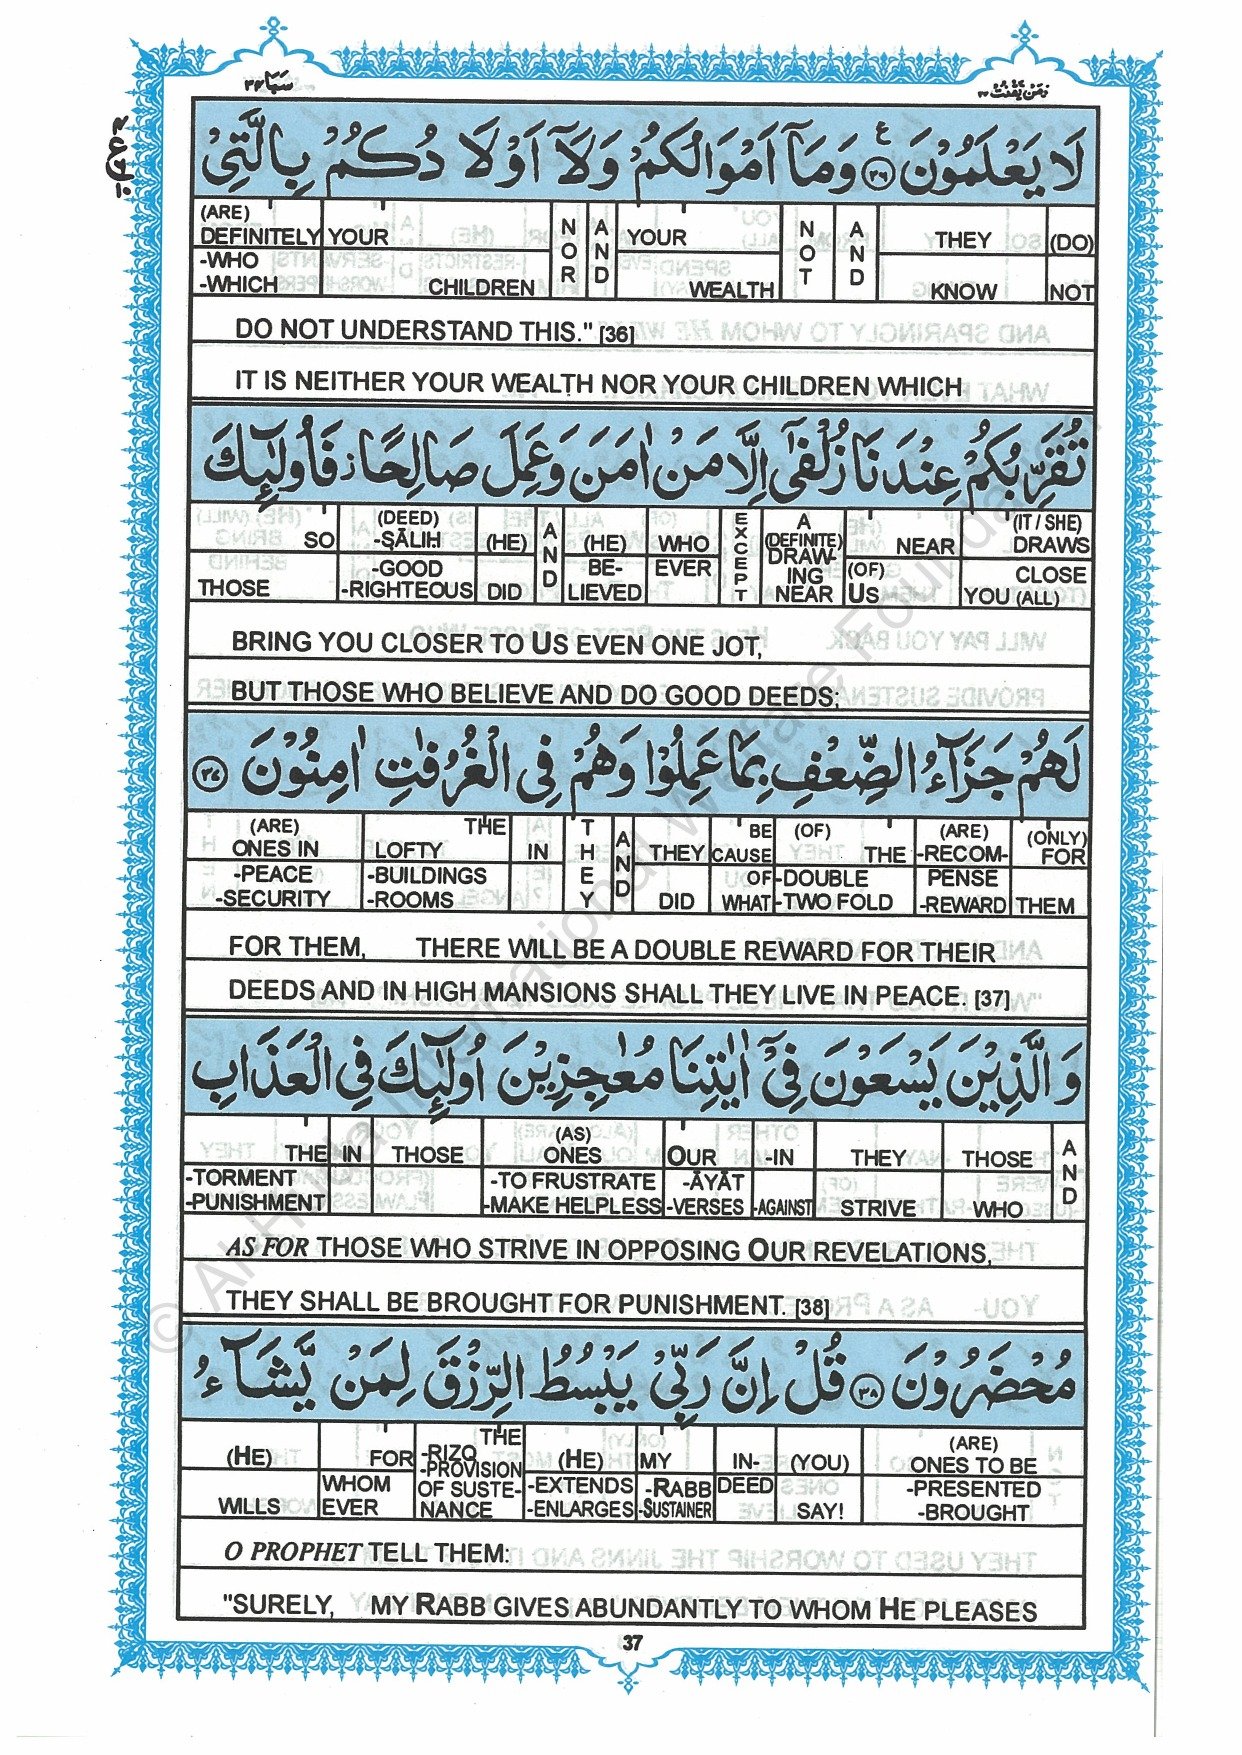 سبا ٣٤
ومن يقنت ٢٢
لَا يَعْلَمُوْنَ ﴿٣٦﴾ ع وَمَاۤ اَمْوَالُكُمْ وَلَاۤ اَوْلَادُكُمْ بِالَّتِيْ
(ARE) DEFINITELY -WHO -WHICH | YOUR CHILDREN | NOR | AND | YOUR WEALTH | NOT | AND | THEY KNOW | (DO) NOT
DO NOT UNDERSTAND THIS." [36]
IT IS NEITHER YOUR WEALTH NOR YOUR CHILDREN WHICH
تُقَرِّبُكُمْ عِنْدَنَا زُلْفٰۤى اِلَّا مَنْ اٰمَنَ وَعَمِلَ صَالِحًا ز فَاُولٰٓئِكَ
SO THOSE | (DEED) -ṢĀLIḤ -GOOD -RIGHTEOUS | (HE) DID | AND | (HE) BE- LIEVED | WHO EVER | EXCEPT | A (DEFINITE) DRAW- ING NEAR | NEAR (OF) US | (IT / SHE) DRAWS CLOSE YOU (ALL)
BRING YOU CLOSER TO US EVEN ONE JOT,
BUT THOSE WHO BELIEVE AND DO GOOD DEEDS;
لَهُمْ جَزَآءُ الضِّعْفِ بِمَا عَمِلُوْا وَهُمْ فِي الْغُرُفٰتِ اٰمِنُوْنَ ﴿٣٧﴾
(ARE) ONES IN -PEACE -SECURITY | THE LOFTY -BUILDINGS -ROOMS | IN | THEY | AND | THEY DID | BE CAUSE OF WHAT | (OF) THE -DOUBLE -TWO FOLD | (ARE) -RECOM- PENSE -REWARD | (ONLY) FOR THEM
FOR THEM, THERE WILL BE A DOUBLE REWARD FOR THEIR
DEEDS AND IN HIGH MANSIONS SHALL THEY LIVE IN PEACE. [37]
وَالَّذِيْنَ يَسْعَوْنَ فِيْۤ اٰيٰتِنَا مُعٰجِزِيْنَ اُولٰٓئِكَ فِي الْعَذَابِ
THE -TORMENT -PUNISHMENT | IN | THOSE | (AS) ONES -TO FRUSTRATE -MAKE HELPLESS | OUR -ĀYĀT -VERSES | -IN -AGAINST | THEY STRIVE | THOSE WHO | AND
AS FOR THOSE WHO STRIVE IN OPPOSING OUR REVELATIONS,
THEY SHALL BE BROUGHT FOR PUNISHMENT. [38]
مُحْضَرُوْنَ ﴿٣٨﴾ قُلْ اِنَّ رَبِّيْ يَبْسُطُ الرِّزْقَ لِمَنْ يَّشَآءُ
(HE) WILLS | FOR WHOM EVER | THE -RIZQ -PROVISION OF SUSTE- NANCE | (HE) -EXTENDS -ENLARGES | MY -RABB -SUSTAINER | IN- DEED | (YOU) SAY! | (ARE) ONES TO BE -PRESENTED -BROUGHT
O PROPHET TELL THEM:
"SURELY, MY RABB GIVES ABUNDANTLY TO WHOM HE PLEASES
37